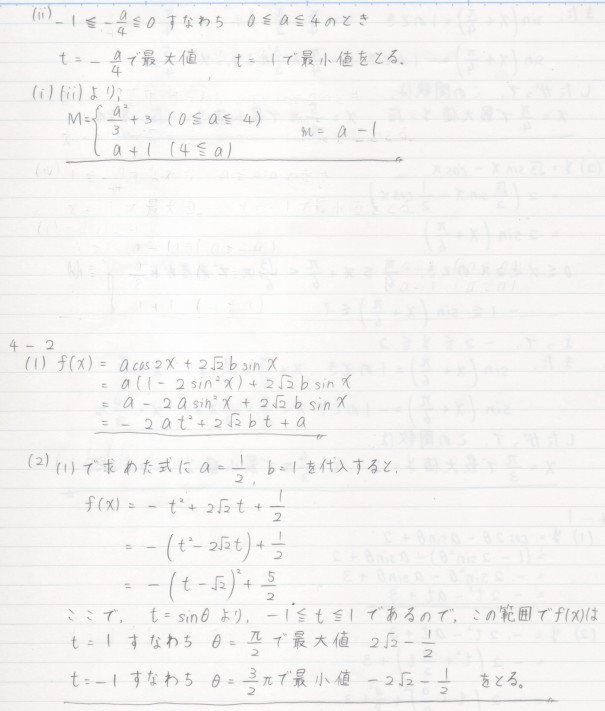 (ii) -1 ≦ -a/4 ≦ 0 すなわち 0 ≦ a ≦ 4 のとき
t = -a/4 で最大値, t = 1 で最小値をとる.
(i)(ii)より,
M = { a²/3 + 3 (0 ≦ a ≦ 4)
a + 1 (4 ≦ a)
m = a - 1
4 - 2
(1) f(x) = a cos2x + 2√2 b sin x
= a(1 - 2sin²x) + 2√2 b sin x
= a - 2a sin²x + 2√2 b sin x
= - 2at² + 2√2 bt + a
(2) (1)で求めた式に a = 1/2, b = 1 を代入すると,
f(x) = - t² + 2√2 t + 1/2
= - (t² - 2√2 t) + 1/2
= - (t - √2)² + 5/2
ここで, t = sinθ より, -1 ≦ t ≦ 1 であるので, この範囲で f(x)は
t = 1 すなわち θ = π/2 で最大値 2√2 - 1/2
t = -1 すなわち θ = 3/2 π で最小値 -2√2 - 1/2 をとる。